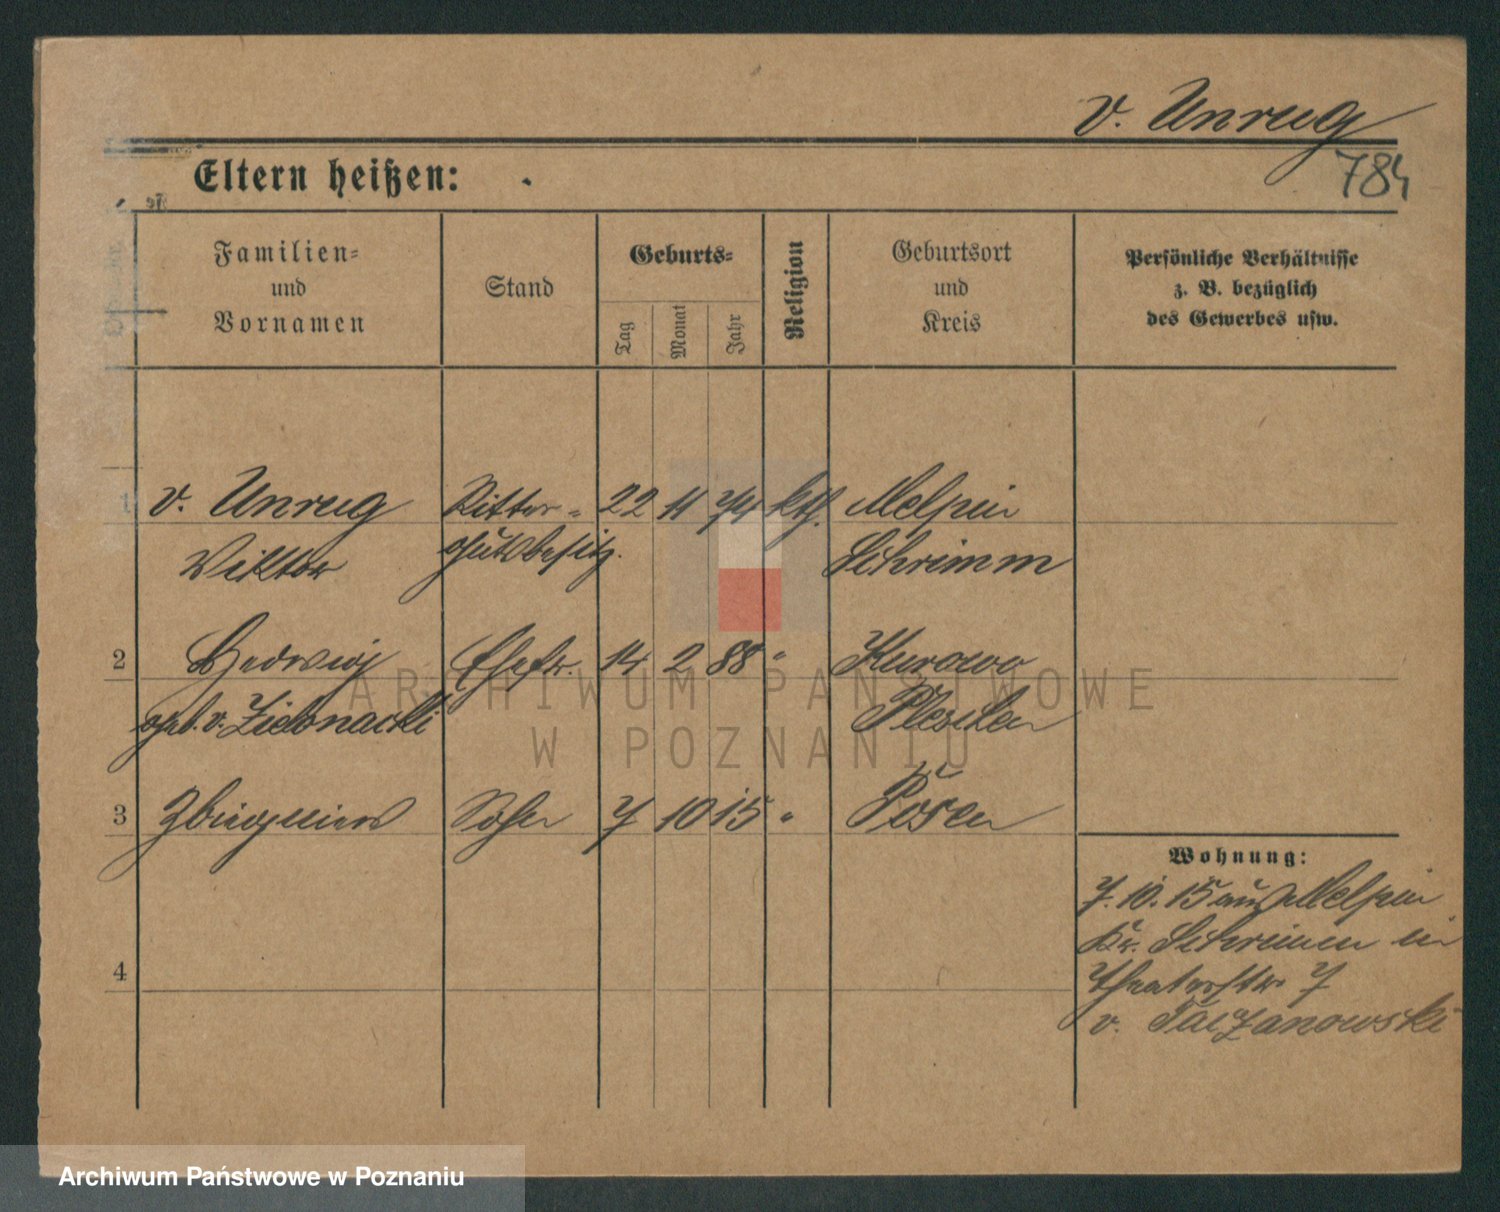 v. Unrug
784
Eltern heißen:
Familien-
und
Vornamen
Stand
Geburts-
Tag
Monat
Jahr
Religion
Geburtsort
und
Kreis
Persönliche Verhältnisse
z. B. bezüglich
des Gewerbes usw.
1 v. Unrug Ritter- 22 11 74 kth. Melpin
Wiktor gutsbesitz. Schrimm
2 Hedwig Ehefr. 14 2 88 " Kurowo
geb. v. Pleschen
3 Zbigniew Sohn 7 10 15 " Posen
Wohnung:
7. 10. 15 aus Melpin
Kr. Schrimm in
Theaterstr. 7
v. Taczanowski
4
ARCHIWUM PAŃSTWOWE
W POZNANIU
Archiwum Państwowe w Poznaniu